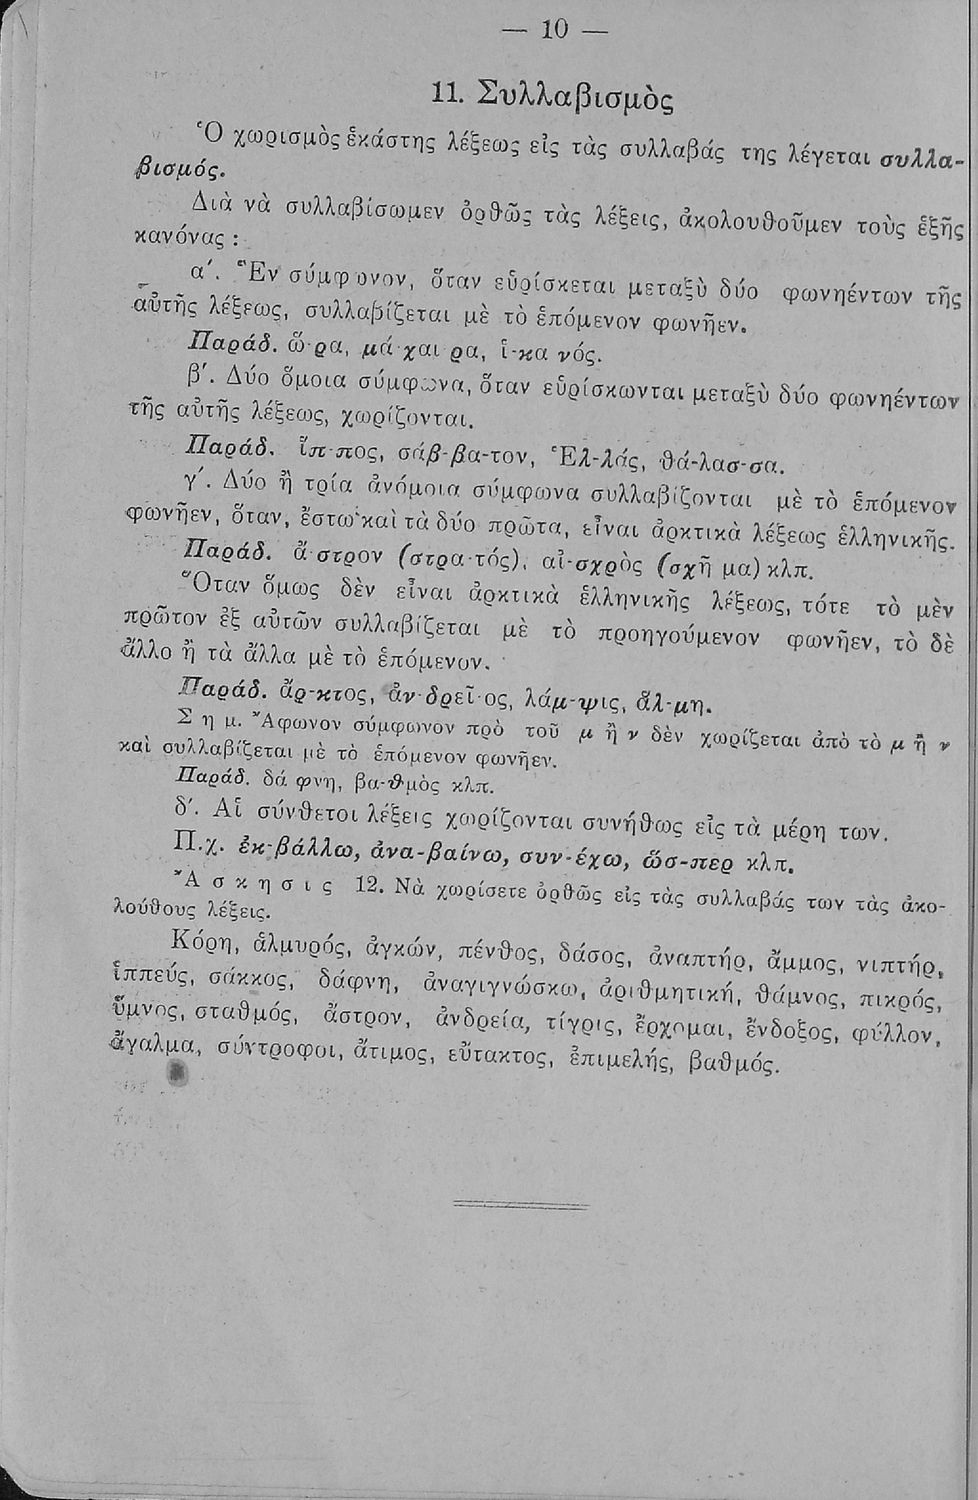 — 10 —
11. Συλλαβισμὸς
Ὁ χωρισμὸς ἑκάστης λέξεως εἰς τὰς συλλαβάς της λέγεται συλλα-
βισμός.
Διὰ νὰ συλλαβίσωμεν ὀρθῶς τὰς λέξεις, ἀκολουθοῦμεν τοὺς ἑξῆς
κανόνας :
α΄. Ἓν σύμφωνον, ὅταν εὑρίσκεται μεταξὺ δύο φωνηέντων τῆς
αὐτῆς λέξεως, συλλαβίζεται μὲ τὸ ἑπόμενον φωνῆεν.
Παράδ. ὥ-ρα, μά-χαι-ρα, ἱ-κα-νός.
β΄. Δύο ὅμοια σύμφωνα, ὅταν εὑρίσκωνται μεταξὺ δύο φωνηέντων
τῆς αὐτῆς λέξεως, χωρίζονται.
Παράδ. ἵπ-πος, σάβ-βα-τον, Ἑλ-λάς, θά-λασ-σα.
γ΄. Δύο ἢ τρία ἀνόμοια σύμφωνα συλλαβίζονται μὲ τὸ ἑπόμενον
φωνῆεν, ὅταν, ἔστω καὶ τὰ δύο πρῶτα, εἶναι ἀρκτικὰ λέξεως ἑλληνικῆς.
Παράδ. ἄ-στρον (στρα-τός), αἰ-σχρὸς (σχῆ-μα) κλπ.
Ὅταν ὅμως δὲν εἶναι ἀρκτικὰ ἑλληνικῆς λέξεως, τότε τὸ μὲν
πρῶτον ἐξ αὐτῶν συλλαβίζεται μὲ τὸ προηγούμενον φωνῆεν, τὸ δὲ
ἄλλο ἢ τὰ ἄλλα μὲ τὸ ἑπόμενον.
Παράδ. ἄρ-κτος, ἀν-δρεῖ-ος, λάμ-ψις, ἅλ-μη.
Σημ. Ἄφωνον σύμφωνον πρὸ τοῦ μ ἢ ν δὲν χωρίζεται ἀπὸ τὸ μ ἢ ν
καὶ συλλαβίζεται μὲ τὸ ἑπόμενον φωνῆεν.
Παράδ. δά-φνη, βα-θμὸς κλπ.
δ΄. Αἱ σύνθετοι λέξεις χωρίζονται συνήθως εἰς τὰ μέρη των.
Π.χ. ἐκ-βάλλω, ἀνα-βαίνω, συν-έχω, ὥσ-περ κλπ.
Ἄσκησις 12. Νὰ χωρίσετε ὀρθῶς εἰς τὰς συλλαβάς των τὰς ἀκο-
λούθους λέξεις.
Κόρη, ἁλμυρός, ἀγκών, πένθος, δάσος, ἀναπτήρ, ἄμμος, νιπτήρ,
ἱππεύς, σάκκος, δάφνη, ἀναγιγνώσκω, ἀριθμητική, θάμνος, πικρός,
ὕμνος, σταθμός, ἄστρον, ἀνδρεία, τίγρις, ἔρχομαι, ἔνδοξος, φύλλον,
ἄγαλμα, σύντροφοι, ἄτιμος, εὔτακτος, ἐπιμελής, βαθμός.